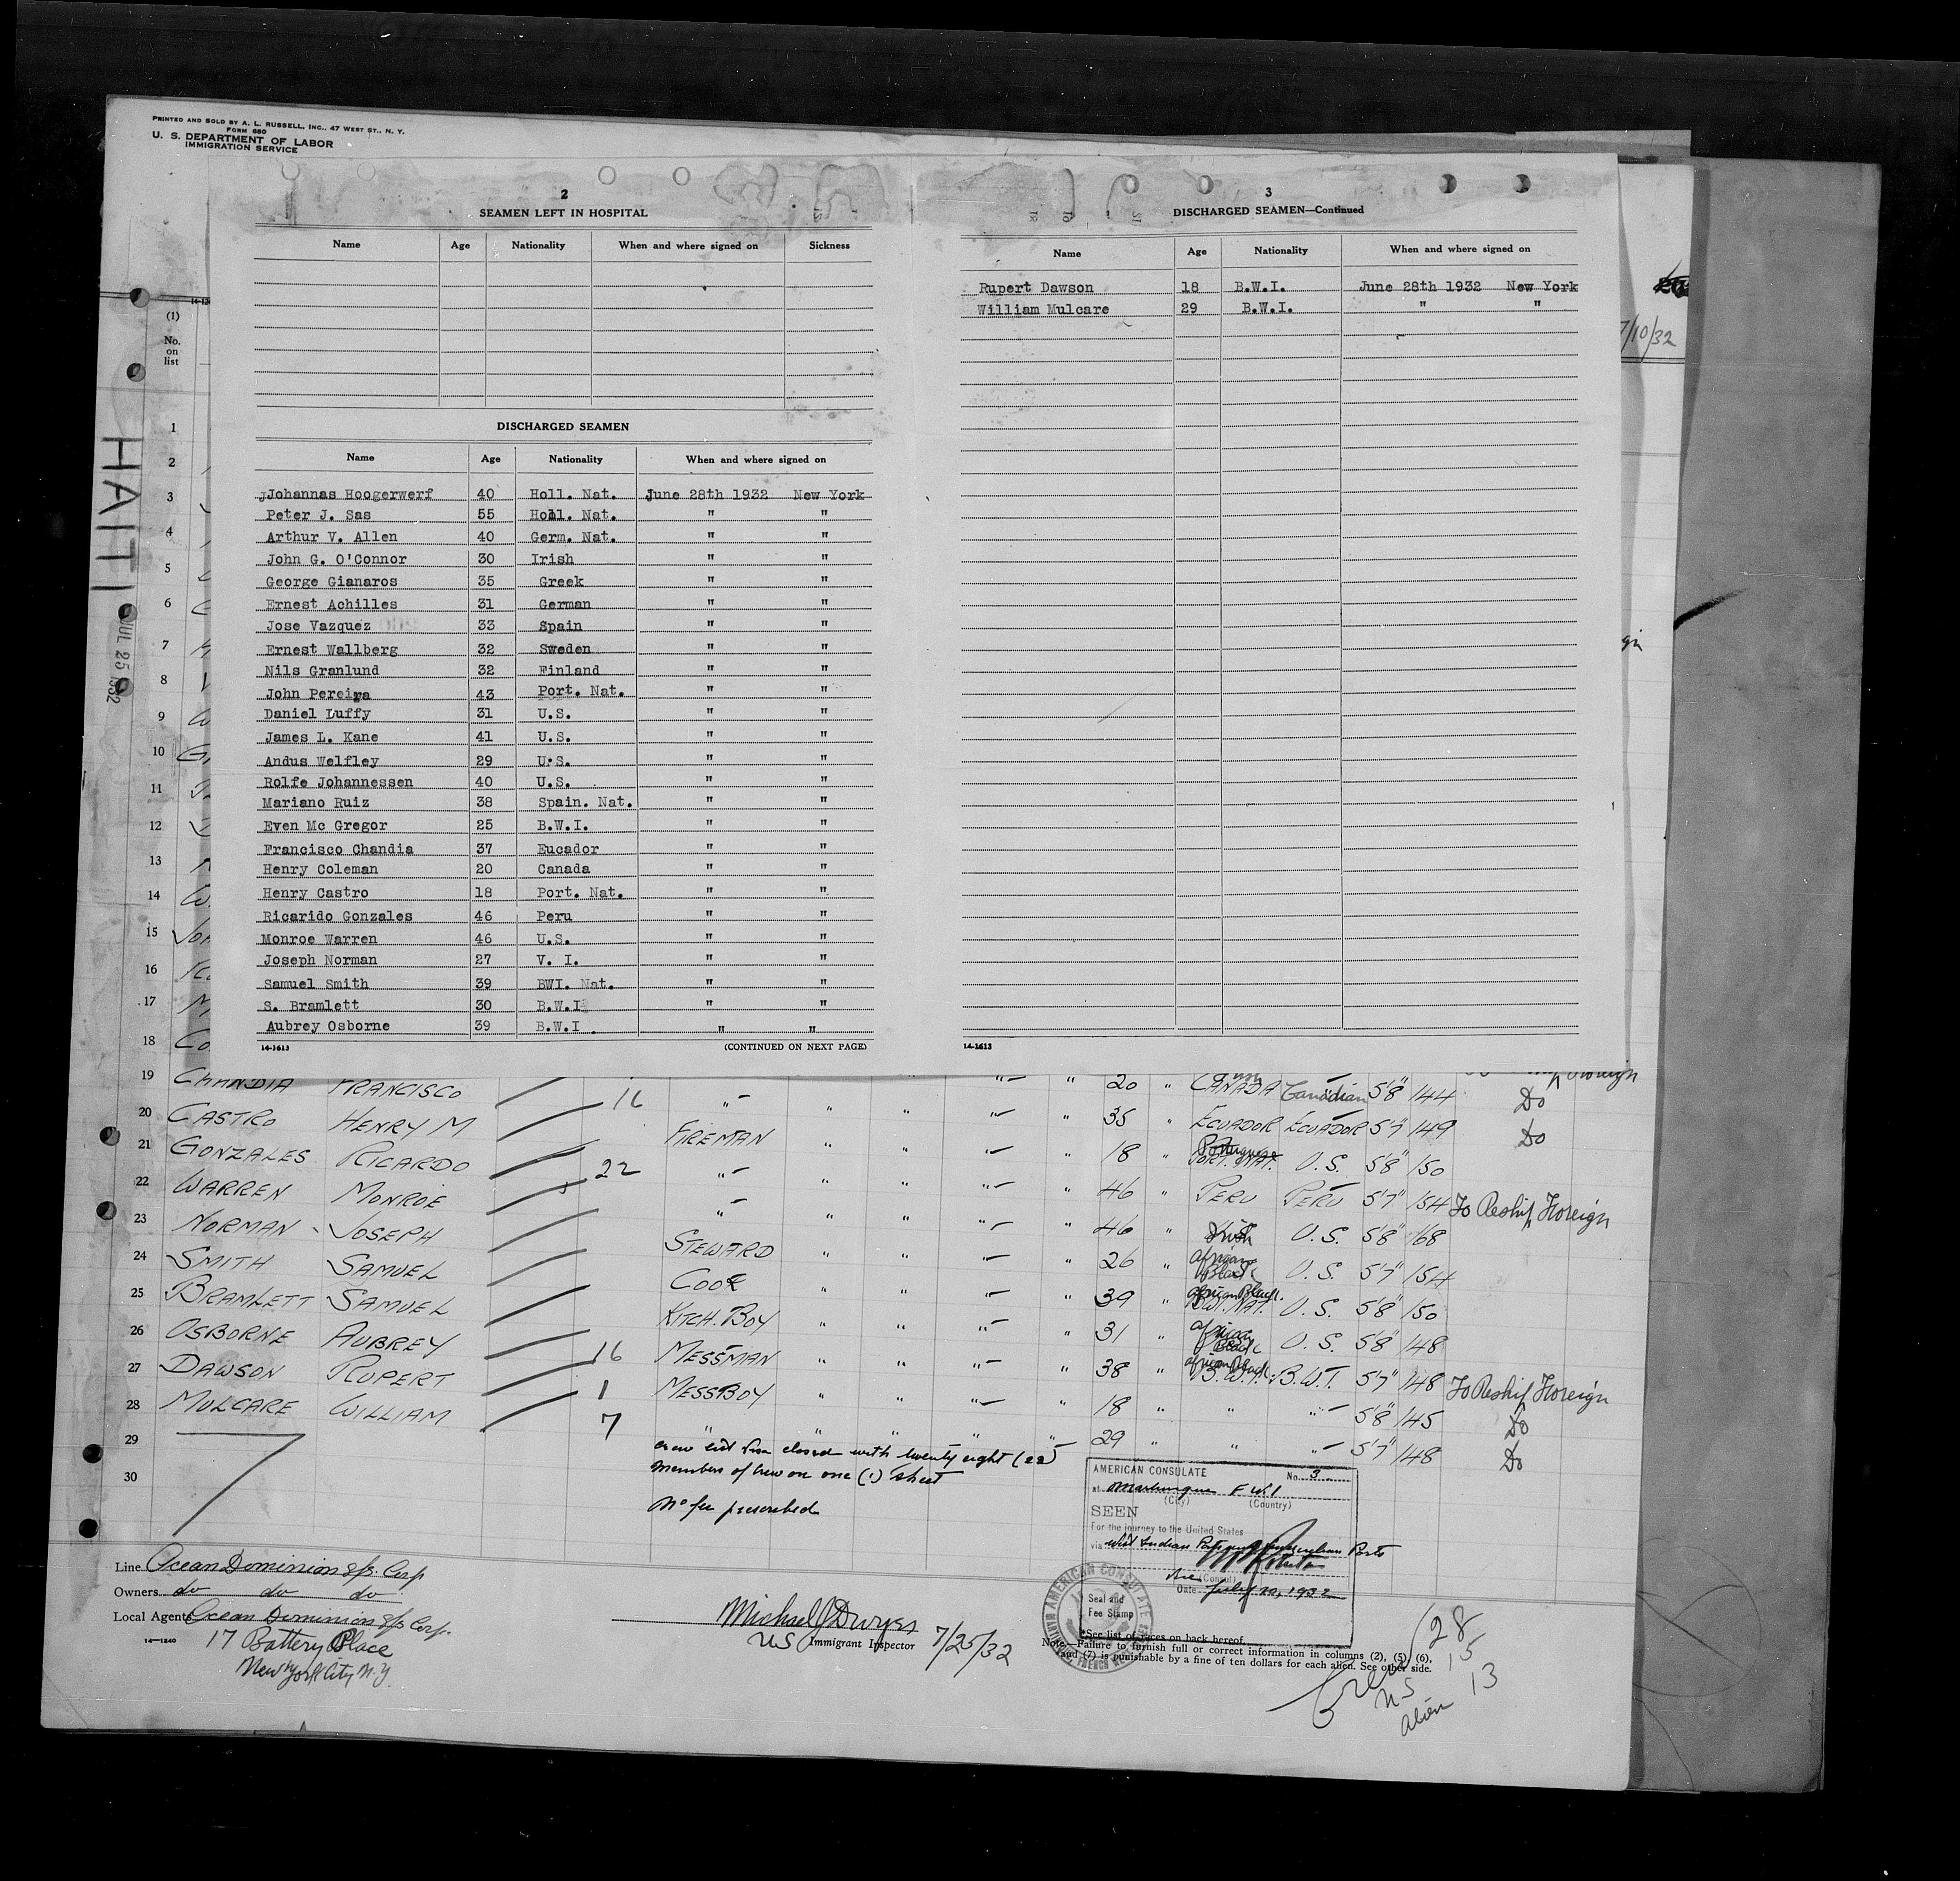 PRINTED AND SOLD BY A. L. RUSSELL, INC., 47 WEST ST., N. Y.
FORM 680
U. S. DEPARTMENT OF LABOR
IMMIGRATION SERVICE
2
SEAMEN LEFT IN HOSPITAL
Name Age Nationality When and where signed on Sickness
DISCHARGED SEAMEN
Name Age Nationality When and where signed on
Johannas Hoogerwerf 40 Holl. Nat. June 28th 1932 New York
Peter J. Sas 55 Holl. Nat. " "
Arthur V. Allen 40 Germ. Nat. " "
John G. O'Connor 30 Irish " "
George Gianaros 35 Greek " "
Ernest Achilles 31 German " "
Jose Vazquez 33 Spain " "
Ernest Wallberg 32 Sweden " "
Nils Granlund 32 Finland " "
John Pereira 43 Port. Nat. " "
Daniel Luffy 31 U.S. " "
James L. Kane 41 U.S. " "
Andus Welfley 29 U.S. " "
Rolfe Johannessen 40 U.S. " "
Mariano Ruiz 38 Spain. Nat. " "
Even Mc Gregor 25 B.W.I. " "
Francisco Chandia 37 Eucador " "
Henry Coleman 20 Canada " "
Henry Castro 18 Port. Nat. " "
Ricarido Gonzales 46 Peru " "
Monroe Warren 46 U.S. " "
Joseph Norman 27 V. I. " "
Samuel Smith 39 BWI. Nat. " "
S. Bramlett 30 B.W.I " "
Aubrey Osborne 39 B.W.I. " "
14-1613 (CONTINUED ON NEXT PAGE)
3
DISCHARGED SEAMEN—Continued
Name Age Nationality When and where signed on
Rupert Dawson 18 B.W.I. June 28th 1932 New York
William Mulcare 29 B.W.I. " "
14-1613
7/10/32
HAITI
JUL 25 1932
(1)
No.
on
list
1
2
3
4
5
6
7
8
9
10
11
12
13
14
15
16
17
18
19 CHANDIA FRANCISCO " " " " 20 " CANADA Canadian 5'8" 144 Do
20 CASTRO HENRY M 16 " " " " " 35 " ECUADOR ECUADOR 5'7" 149 Do
21 GONZALES RICARDO FIREMAN " " " " 18 " Portuguese PORT. NAT. U.S. 5'8" 150
22 WARREN MONROE 22 " " " " " 46 " PERU PERU 5'7" 154 To Reship Foreign
23 NORMAN JOSEPH " " " " " 46 " Irish U.S. 5'8" 168
24 SMITH SAMUEL STEWARD " " " " 26 " African Black U.S. 5'7" 154
25 BRAMLETT SAMUEL COOK " " " " 39 " African Black B.W.I. NAT. U.S. 5'8" 150
26 OSBORNE AUBREY KITCH. BOY " " " " 31 " African Black U.S. 5'8" 148
27 DAWSON RUPERT 16 MESSMAN " " " " 38 " African Black B.W.I. B.W.I. 5'7" 148 To Reship Foreign
28 MULCARE WILLIAM 1 MESSBOY " " " " 18 " " " 5'8" 145 Do
29 7 " " " " " 29 " " " 5'7" 148 Do
30
Crew list visa closed with twenty eight (28)
members of crew on one (1) sheet
No fee prescribed
AMERICAN CONSULATE No. 3
at Martinique F W I
(City) (Country)
SEEN
For the journey to the United States
via West Indian Ports
Vice (Consul)
Date July 12, 1932
Seal and
Fee Stamp
AMERICAN CONSULATE
MARTINIQUE, FRENCH WEST INDIES
*See list of races on back hereof.
Note.—Failure to furnish full or correct information in columns (2), (5), (6),
and (7) is punishable by a fine of ten dollars for each alien. See other side.
Line Ocean Dominion S/S. Corp
Owners do do do
Local Agents Ocean Dominion S/S Corp.
14—1240
17 Battery Place
New York City N.Y.
Michael J Dwyer
US Immigrant Inspector 7/25/32
Crew 28
US 15
Alien 13